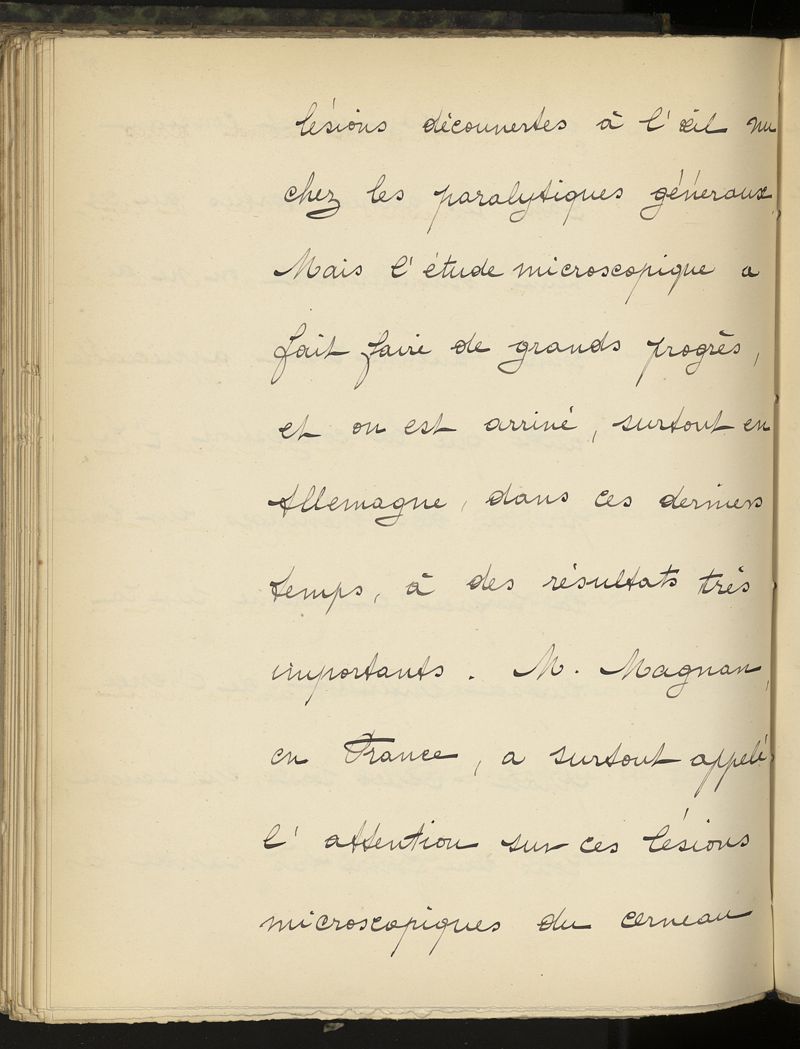 lésions découvertes à l'œil nu
chez les paralytiques généraux.
Mais l'étude microscopique a
fait faire de grands progrès,
et on est arrivé, surtout en
Allemagne, dans ces derniers
temps, à des résultats très
importants. M. Magnan,
en France, a surtout appelé
l'attention sur ces lésions
microscopiques du cerveau